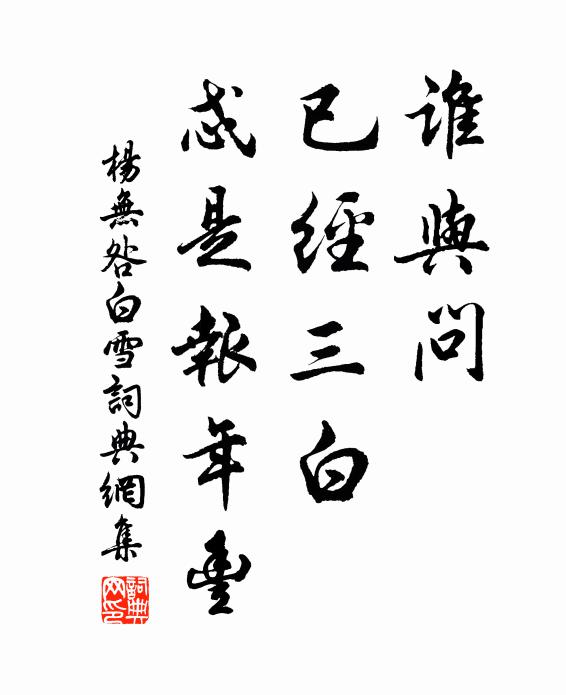 誰與問
已經三白
或是報年豐
楊無咎白雪詞典網集
詞典网印